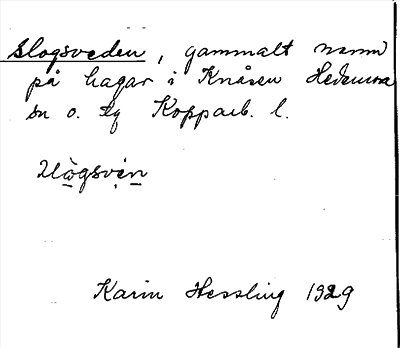 Slogsveden, gammalt namn
på hagar i Knåsen Hedemora
sn o. tg Kopparb. l.
Karin Hessling 1929